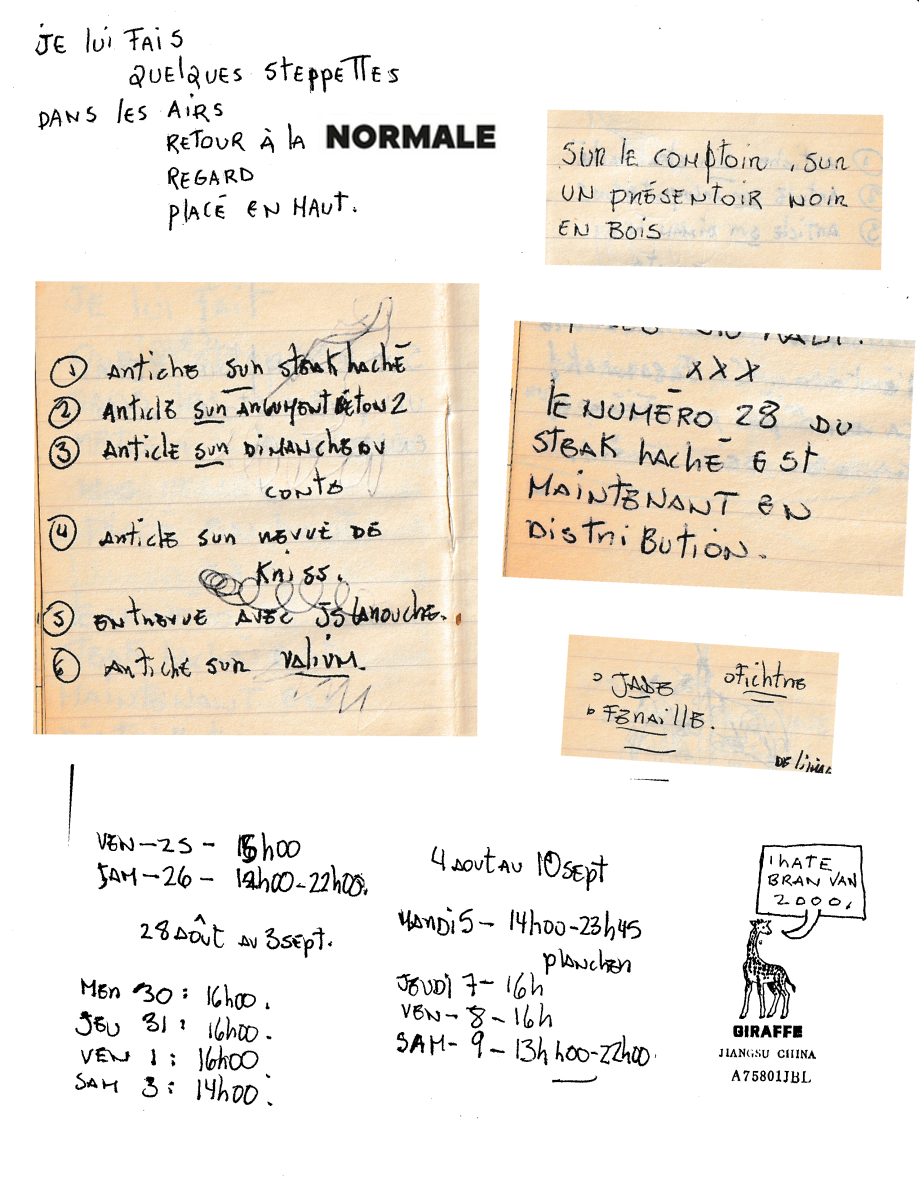 JE lui FAIS
QUELQUES STEPPETTES
DANS LES AIRS
RETOUR À LA NORMALE
REGARD
PLACÉ EN HAUT.
SUR LE COMPTOIR, SUR
UN PRÉSENTOIR NOIR
EN BOIS
① ARTICLE SUR STEAK HACHÉ
② ARTICLE SUR ARGUMENT BÉTON 2
③ ARTICLE SUR DIMANCHE DU
CONTE
④ ARTICLE SUR REVUE DE
KRISS.
⑤ ENTREVUE AVEC JS LAROUCHE.
⑥ ARTICLE SUR VALIUM.
XXX
LE NUMÉRO 28 DU
STEAK HACHÉ EST
MAINTENANT EN
DISTRIBUTION.
JADE
FICHTRE
FERAILLE.
VEN - 25 - h00
SAM - 26 - h00 - 22h00.
28 AOÛT AU 3 SEPT.
MER 30 : 16h00.
JEU 31 : 16h00.
VEN 1 : 16h00
SAM 3 : 14h00.
4 AOUT AU 10 SEPT
MARDI 5 - 14h00 - 23h45
PLANCHER
JEUDI 7 - 16h
VEN - 8 - 16h
SAM - 9 - 13h h00 - 22h00.
I HATE
BRAN VAN
2000.
GIRAFFE
JIANGSU CHINA
A75801JBL